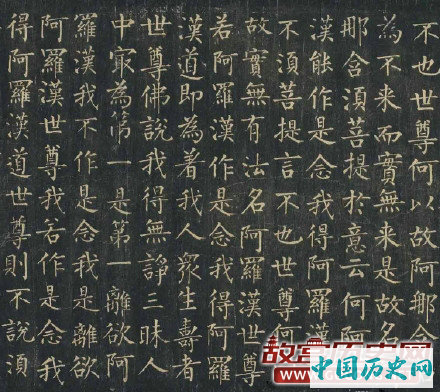 不也世尊何以故阿那含
為不来而實無来是故名
那含須菩提於意云何阿
漢能作是念我得阿羅漢
不須菩提言不也世尊何
故實無有法名阿羅漢世尊
若阿羅漢作是念我得阿羅
漢道即為著我人衆生壽者
世尊佛說我得無諍三昧人
中冣為第一是第一離欲阿
羅漢我不作是念我是離欲
阿羅漢世尊我若作是念我
得阿羅漢道世尊則不說須
中国历史网